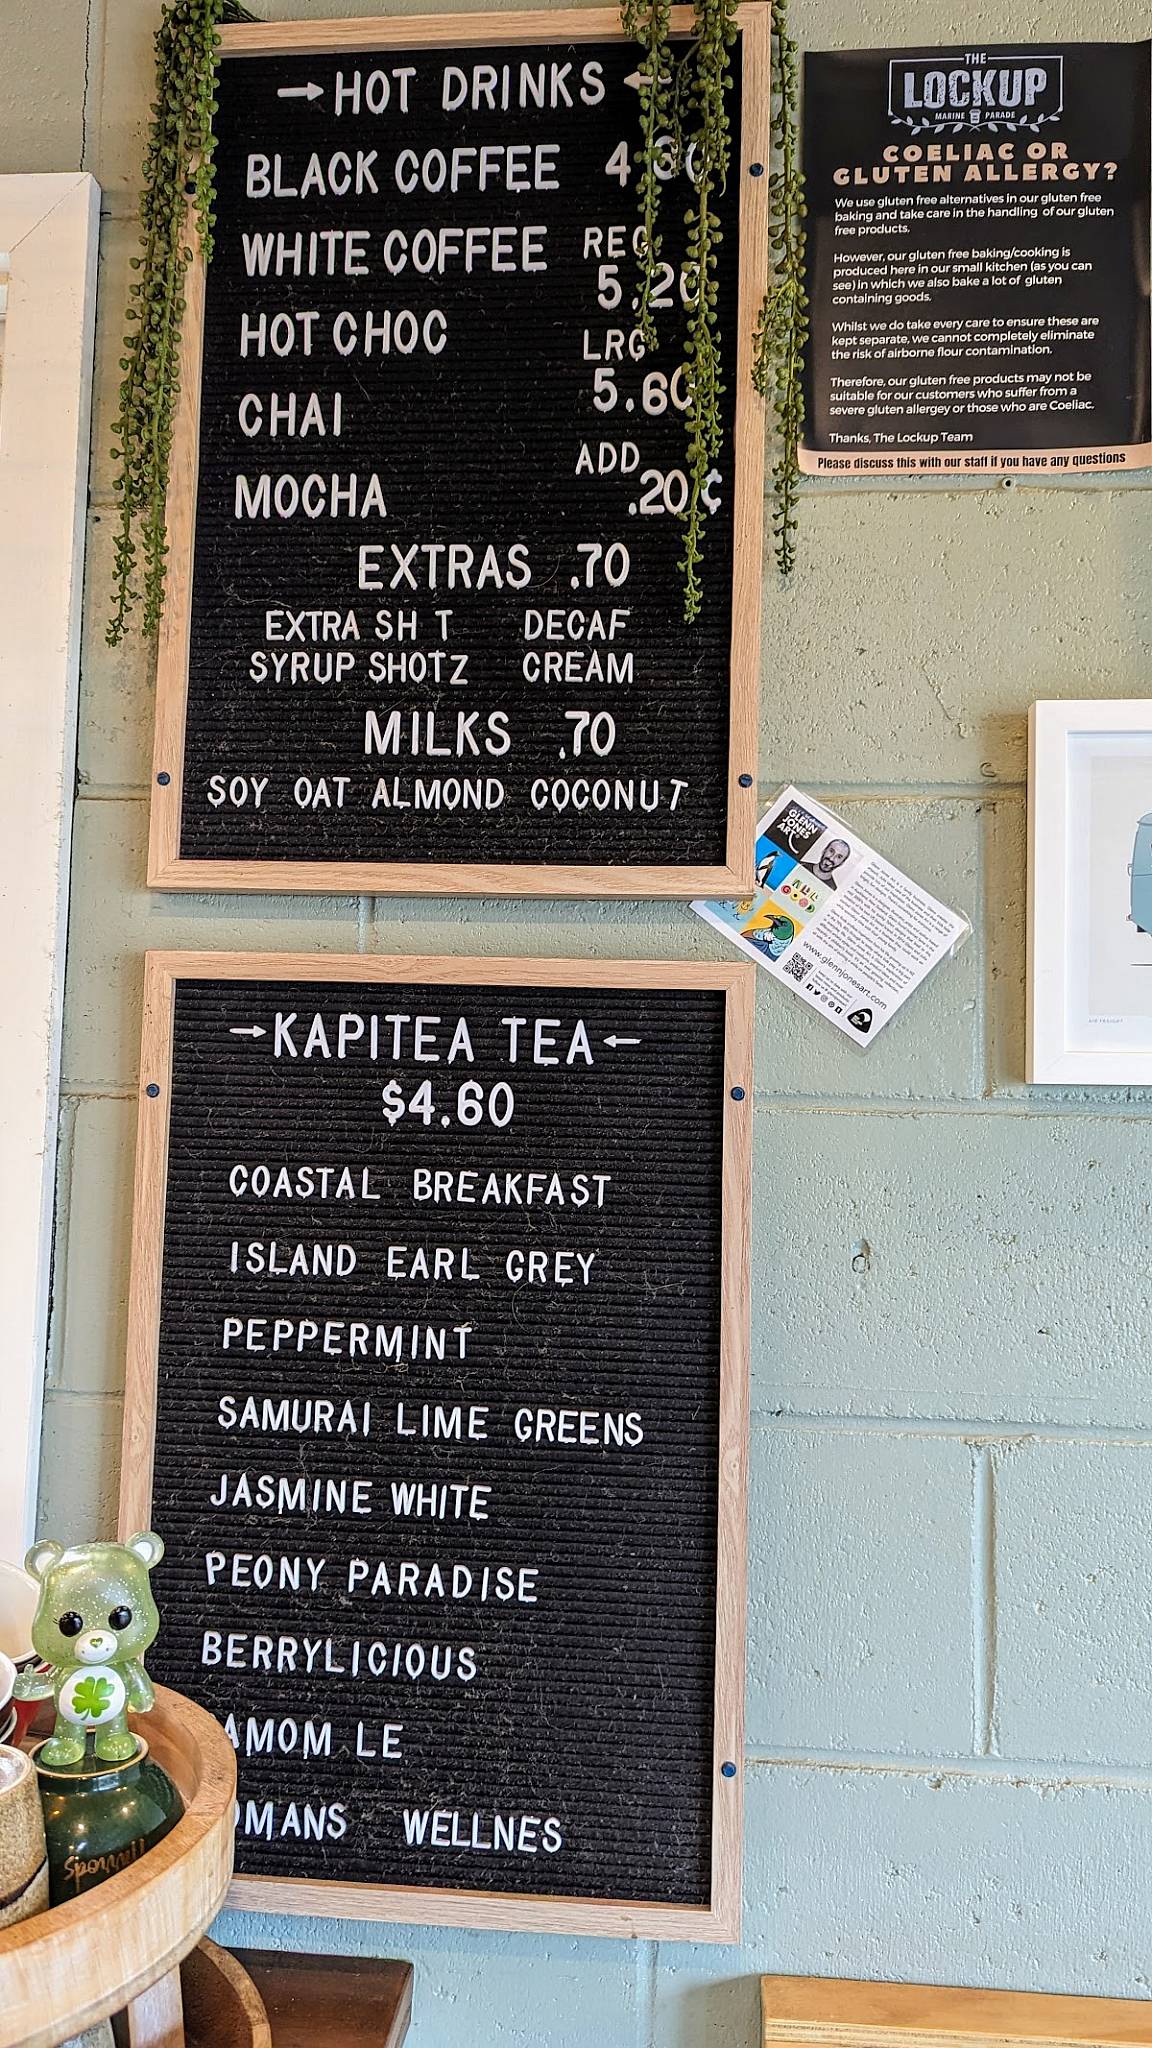 →HOT DRINKS←
BLACK COFFEE
WHITE COFFEE REG
5.20
HOT CHOC
LRG
5.60
CHAI
ADD
MOCHA .20¢
EXTRAS .70
EXTRA SH T DECAF
SYRUP SHOTZ CREAM
MILKS .70
SOY OAT ALMOND COCONUT
→KAPITEA TEA←
$4.60
COASTAL BREAKFAST
ISLAND EARL GREY
PEPPERMINT
SAMURAI LIME GREENS
JASMINE WHITE
PEONY PARADISE
BERRYLICIOUS
AMOM LE
OMANS WELLNES
THE
LOCKUP
MARINE PARADE
COELIAC OR
GLUTEN ALLERGY?
We use gluten free alternatives in our gluten free
baking and take care in the handling of our gluten
free products.
However, our gluten free baking/cooking is
produced here in our small kitchen (as you can
see) in which we also bake a lot of gluten
containing goods.
Whilst we do take every care to ensure these are
kept separate, we cannot completely eliminate
the risk of airborne flour contamination.
Therefore, our gluten free products may not be
suitable for our customers who suffer from a
severe gluten allergey or those who are Coeliac.
Thanks, The Lockup Team
Please discuss this with our staff if you have any questions
GLENN
JONES
ART
ALL
GOOD
www.glennjonesart.com
AIR FREIGHT
Harrods